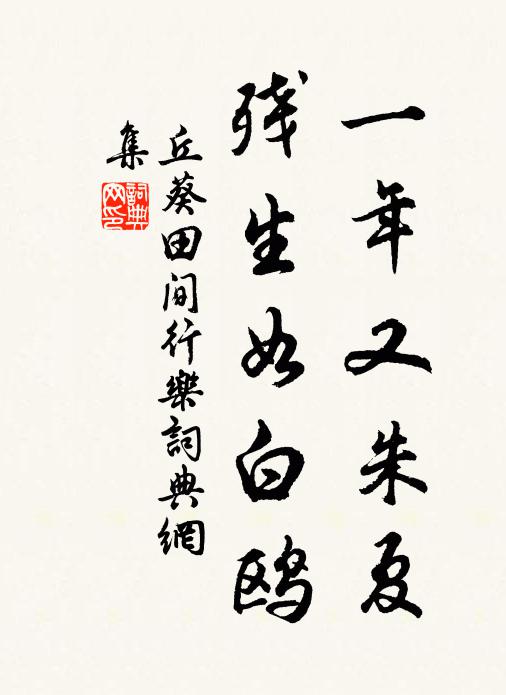 一年又朱夏
残生如白鸥
丘葵田间行樂詞典網
集
詞典
网印